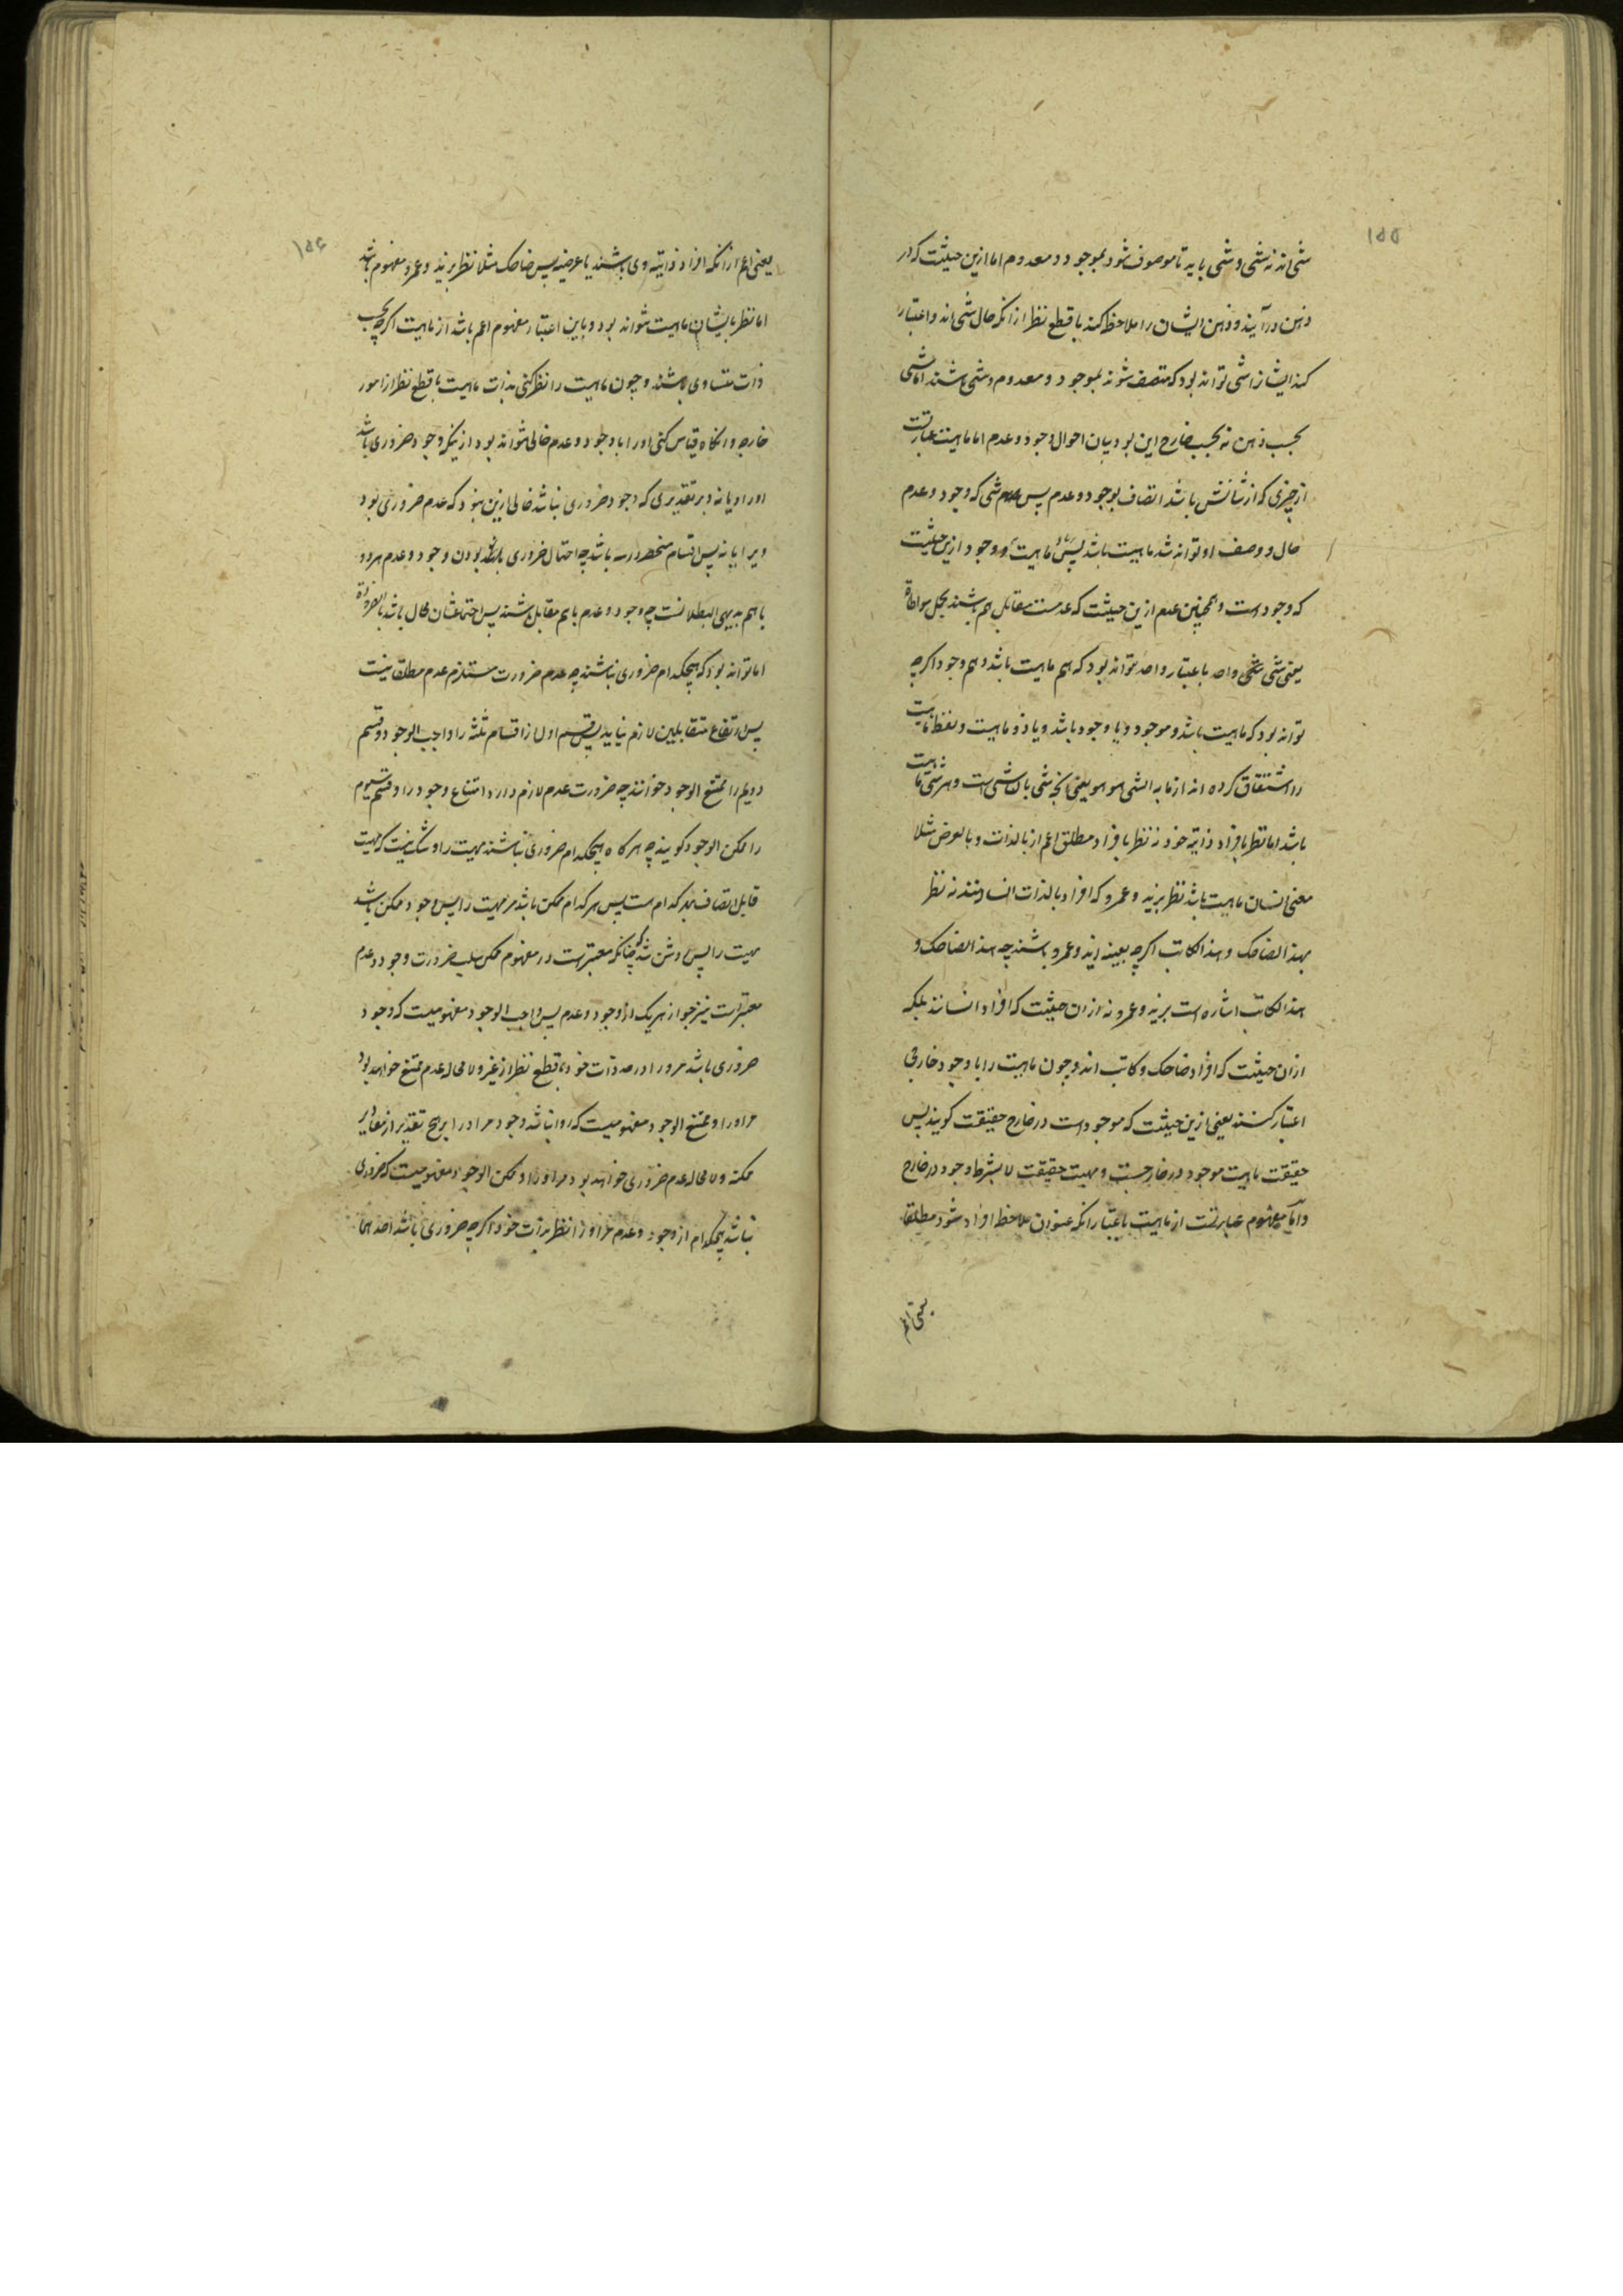 ۱۵۵
شی‌اند نه شی و شی باید تا موصوف شود بموجود و معدوم اما ازین حیثیت که در
ذهن درآیند و ذهن ایشان را ملاحظه کند با قطع نظر از انکه حال شی‌اند و اعتبار
کند ایشانرا شی تواند بود که متصف شوند بموجود و معدوم و شی باشند اما شی
بحسب ذهن نه بحسب خارج این بود بیان احوال وجود و عدم اما ماهیت عبارتست
از چیزی که از شانش باشد اتصاف بوجود و عدم پس هر شی که وجود و عدم
حال و وصف او تواند شد ماهیت باشد پس ماهیت و وجود ازین حیثیت
که وجود است و همچنین عدم ازین حیثیت که عدمست مقابل هم باشند بحمل مواطاة
یعنی شی شخصی واحد باعتبار واحد نتواند بود که هم ماهیت باشد و هم وجود اگرچه
تواند بود که ماهیت باشد و موجود و یا وجود باشد و یا ذو ماهیت و لفظ ماهیت
را اشتقاق کرده اند از ما به الشی هو هو یعنی انچه شی بان شی است و هر شی ماهیت
باشد اما نظر بافراد ذاتیه خود نه نظر بافراد مطلق اعم از بالذات و بالعرض مثلا
معنی انسان ماهیت باشد نظر بزید و عمرو که افراد بالذات انسانند نه نظر
بهذا الضاحک و هذا الکاتب اگرچه بعینه زید و عمرو باشند چه هذا الضاحک و
هذا الکاتب اشاره است بزید و عمرو نه از ان حیثیت که افراد انسانند بلکه
ازان حیثیت که افراد ضاحک و کاتب اند و چون ماهیت را با وجود خارجی
اعتبار کنند یعنی ازین حیثیت که موجود است در خارج حقیقت گویند پس
حقیقت ماهیت موجود در خارجست و مهیت حقیقت لا بشرط وجود در خارج
و اما مفهوم عبارتست از ماهیت باعتبار انکه عنوان ملاحظه افراد شود مطلقا
یعنی اعم
۱۵۶
یعنی اعم از انکه افراد ذاتیه وی باشند یا عرضیه پس ضاحک مثلا نظر بزید و عمرو مفهوم باشد
اما نظر بایشان ماهیت نتواند بود و باین اعتبار مفهوم اعم باشد از ماهیت اگرچه بحسب
ذات متساوی باشند و چون ماهیت را نظر کنی بذات ماهیت با قطع نظر از امور
خارجه و انگاه قیاس کنی او را با وجود و عدم خالی نتواند بود از اینکه وجود ضروری باشد
او را و یا نه و بر تقدیری که وجود ضروری نباشد خالی ازین نبود که عدم ضروری بود
ویرا یا نه پس اقسام منحصر در سه باشد چه احتمال ضروری بودن وجود و عدم هر دو
با هم بدیهی البطلانست چه وجود و عدم با هم مقابل باشند پس اجتماعشان محال باشد بالضرورة
اما تواند بود که هیچکدام ضروری نباشند چه عدم ضرورت مستلزم عدم مطلق نیست
پس ارتفاع متقابلین لازم نیاید پس قسم اول از اقسام ثلثه را واجب الوجود و قسم
دویم را ممتنع الوجود خوانند چه ضرورت عدم لازم دارد امتناع وجود را و قسم سیوم
را ممکن الوجود گویند چه هرگاه هیچکدام ضروری نباشند مهیت را و شک نیست که مهیت
قابل اتصاف بهر کدام است پس هر کدام ممکن باشد مر مهیت را پس وجود ممکن باشد
مهیت را پس روشن شد که چنانکه معتبر است در مفهوم ممکن سلب ضرورت وجود و عدم
معتبر است نیز جواز هر یک از وجود و عدم پس واجب الوجود مفهومیست که وجود
ضروری باشد مر او را در حد ذات خود با قطع نظر از غیر و لا محاله عدم ممتنع خواهد بود
مر او را و ممتنع الوجود مفهومیست که روا نباشد وجود مر او را بر هیچ تقدیر از تقادیر
ممکنه و لا محاله عدم ضروری خواهد بود مر او را و ممکن الوجود مفهومیست که ضروری
نباشد هیچکدام از وجود و عدم مر او را نظر بذات خود اگرچه ضروری باشد احدهما